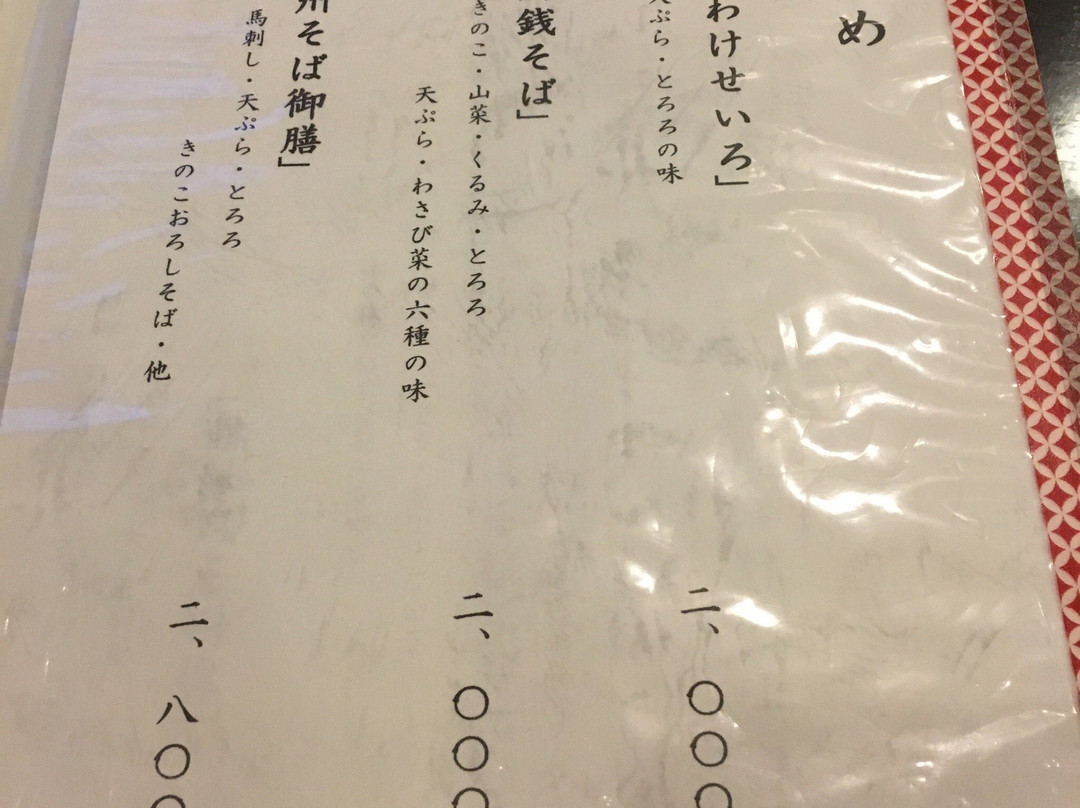 め
わけせいろ」
天ぷら・とろろの味
二、〇〇〇
銭そば」
きのこ・山菜・くるみ・とろろ
天ぷら・わさび菜の六種の味
二、〇〇〇
州そば御膳」
馬刺し・天ぷら・とろろ
きのこおろしそば・他
二、八〇〇